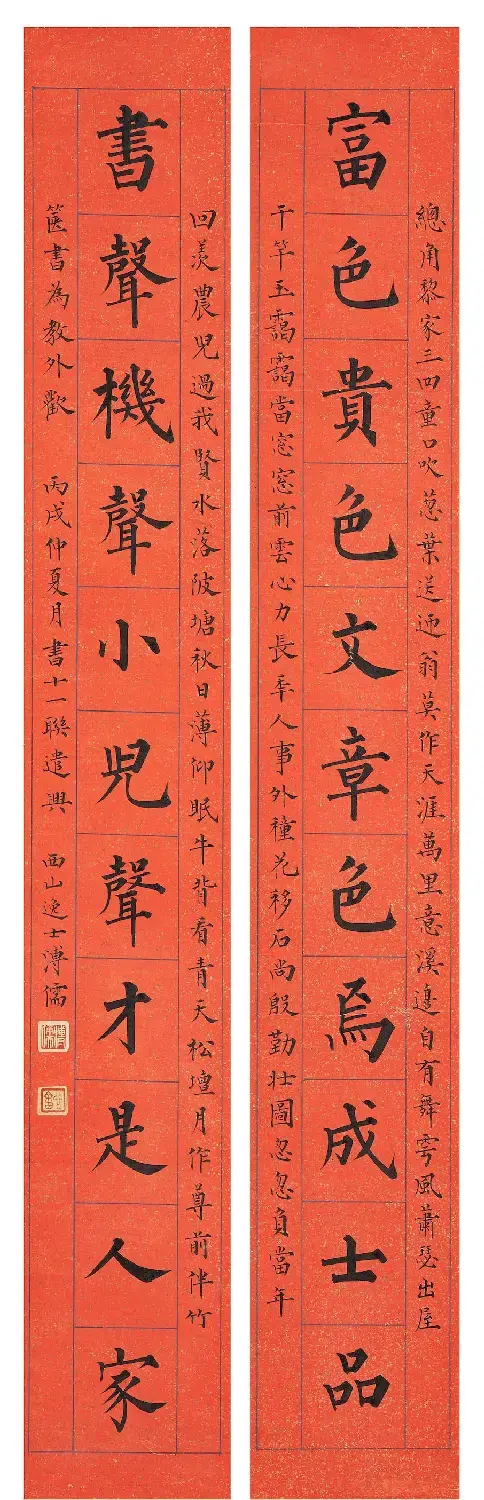 總角黎家三四童口吹葱葉送迎翁莫作天涯萬里意溪邊自有舞雩風蕭瑟出屋
富色貴色文章色焉成士品
千竿玉靄靄當窓窓前雲心力長秊人事外種花移石尚殷勤壯圖忽忽負當年
回羨農兒過我賢水落陂塘秋日薄仰眠牛背看青天松壇月作尊前伴竹
書聲機聲小兒聲才是人家
篋書為教外歡 丙戌仲夏月書十一聯遣興 西山逸士溥儒